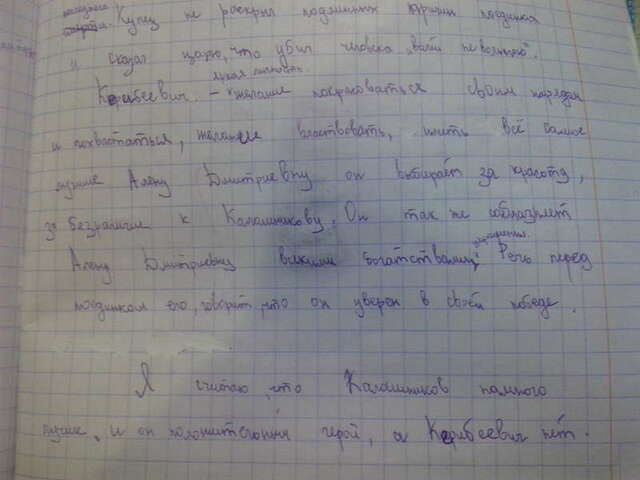 купец не раскрыл подлинных причин поединка
и сказал царю, что убил человека „волей не волнею".
яркая личность.
Керибеевич – желание покрасоваться своим нарядом
и похвастаться, желание властвовать, иметь всё самое
лучшее Алёну Дмитриевну он выбирает за красоту,
за безразличие к Калашникову. Он так же соблазняет
Алёну Дмитриевну всякими богатствами. Речь перед
поединком его, говорит, что он уверен в своей победе.
Я считаю, что Калашников намного
лучше, и он положительный герой, а Керибеевич нет.